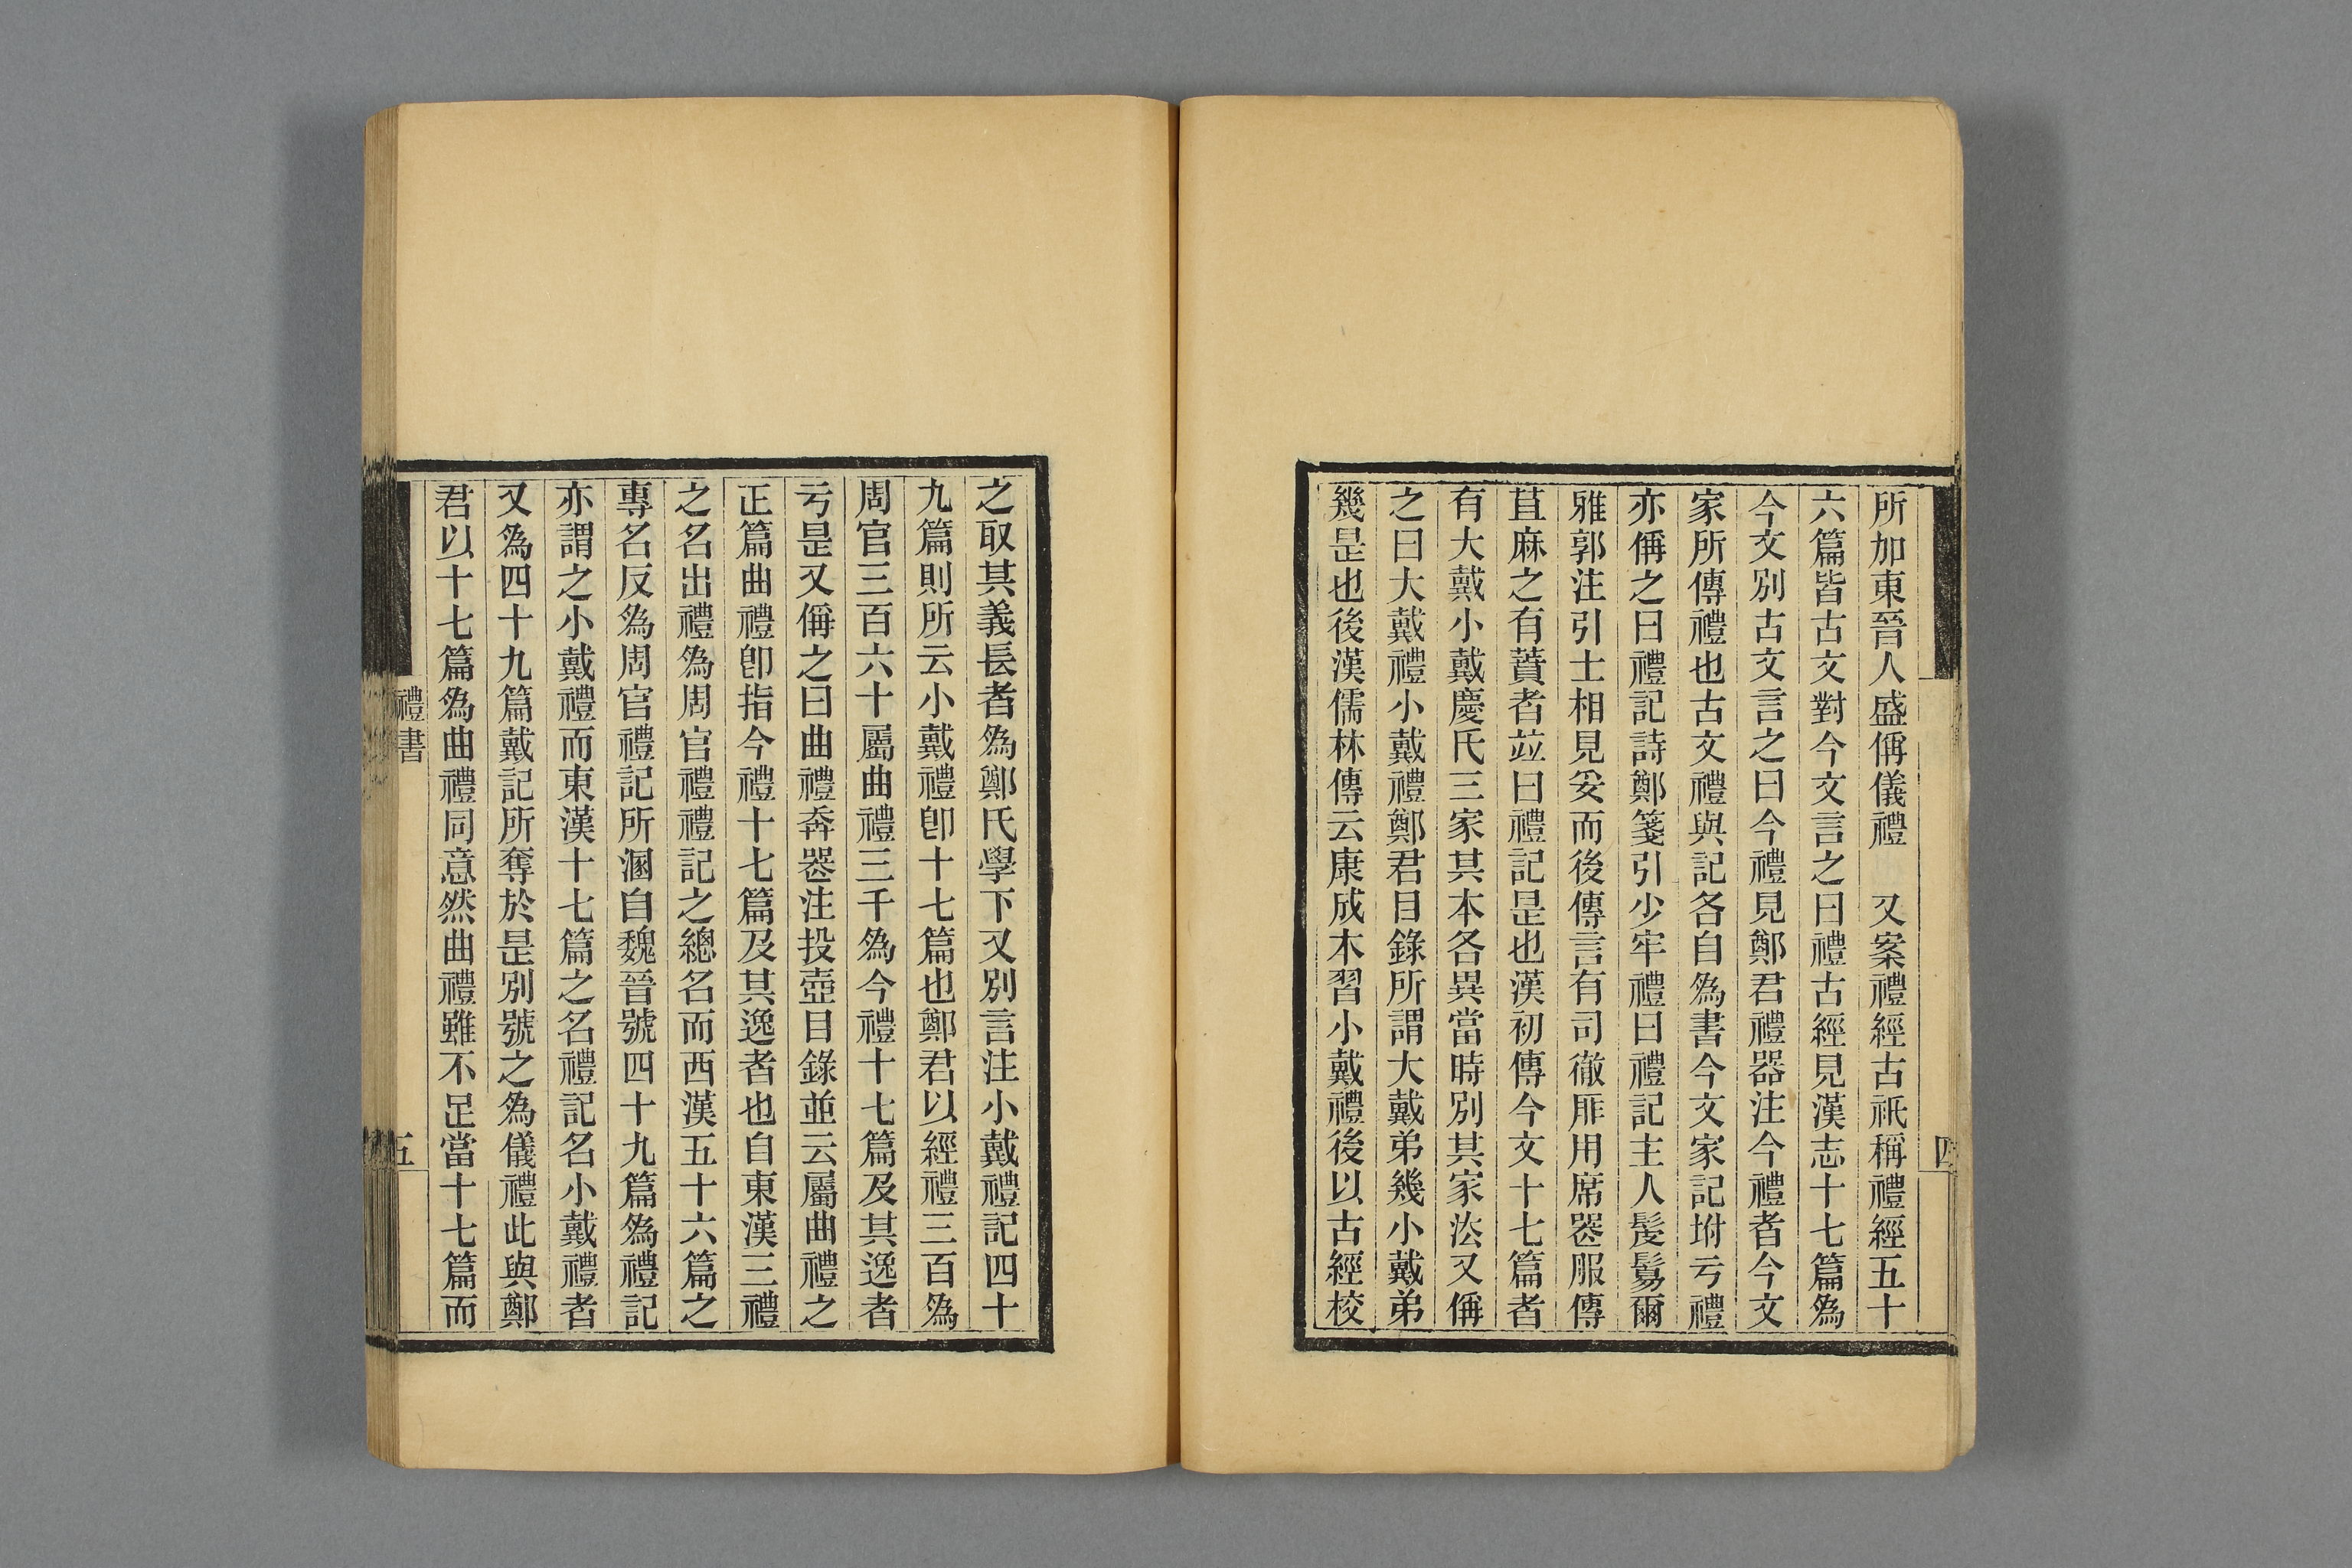 所加東晉人盛偁儀禮　又案禮經古祇稱禮經五十
六篇皆古文對今文言之曰禮古經見漢志十七篇為
今文別古文言之曰今禮見鄭君禮器注今禮者今文
家所傳禮也古文禮與記各自為書今文家記坿亏禮
亦偁之曰禮記詩鄭箋引少牢禮曰禮記主人髲鬄爾
雅郭注引士相見妥而後傳言有司徹厞用席器服傳
苴麻之有蕡者竝曰禮記是也漢初傳今文十七篇者
有大戴小戴慶氏三家其本各異當時別其家法又偁
之曰大戴禮小戴禮鄭君目錄所謂大戴弟幾小戴弟
幾是也後漢儒林傳云康成本習小戴禮後以古經校
之取其義長者為鄭氏學下又別言注小戴禮記四十
九篇則所云小戴禮卽十七篇也鄭君以經禮三百為
周官三百六十屬曲禮三千為今禮十七篇及其逸者
亏是又偁之曰曲禮奔器注投壺目錄並云屬曲禮之
正篇曲禮卽指今禮十七篇及其逸者也自東漢三禮
之名出禮為周官禮禮記之總名而西漢五十六篇之
專名反為周官禮記所溷自魏晉號四十九篇為禮記
亦謂之小戴禮而東漢十七篇之名禮記名小戴禮者
又為四十九篇戴記所奪於是別號之為儀禮此與鄭
君以十七篇為曲禮同意然曲禮雖不足當十七篇而
禮書
五
四